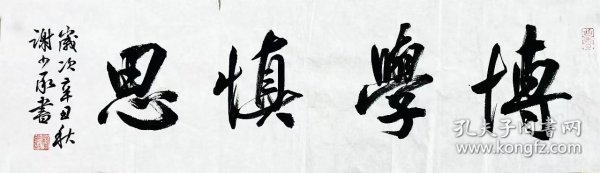 博學慎思
歲次辛丑秋
謝少承書
孔夫子旧书网
www.kongfz.com